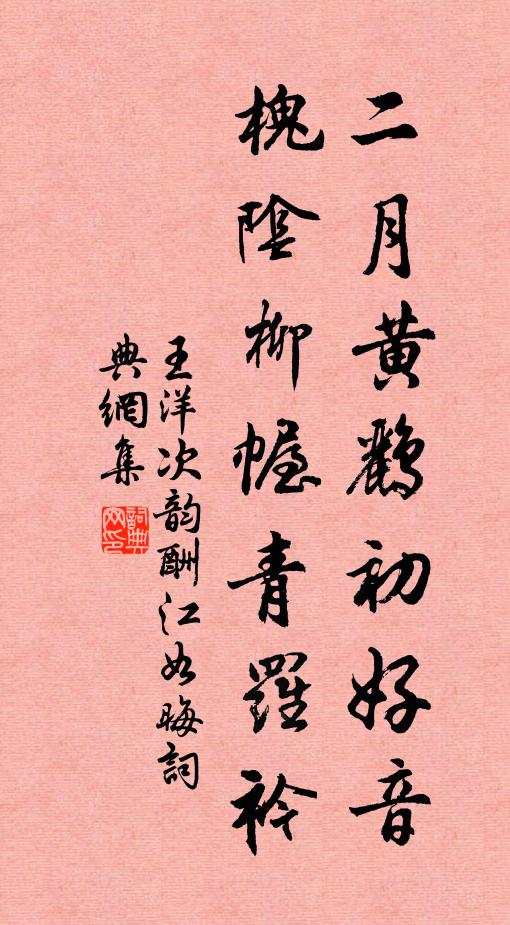 二月黄鸝初好音
槐陰柳幄青羅衿
王洋次韵酬江如晦詞
典網集
詞典網印